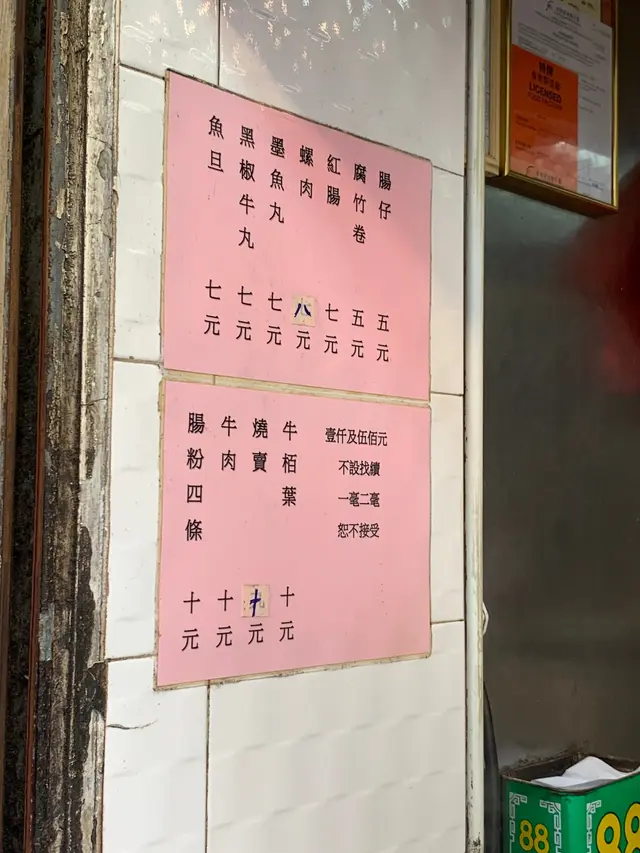 腸仔 五元
腐竹卷 五元
紅腸 七元
螺肉 八元
墨魚丸 七元
黑椒牛丸 七元
魚旦 七元
壹仟及伍佰元
不設找續
一毫二毫
恕不接受
牛栢葉 十元
燒賣 十元
牛肉 十元
腸粉四條 十元
LICENSED
88
88